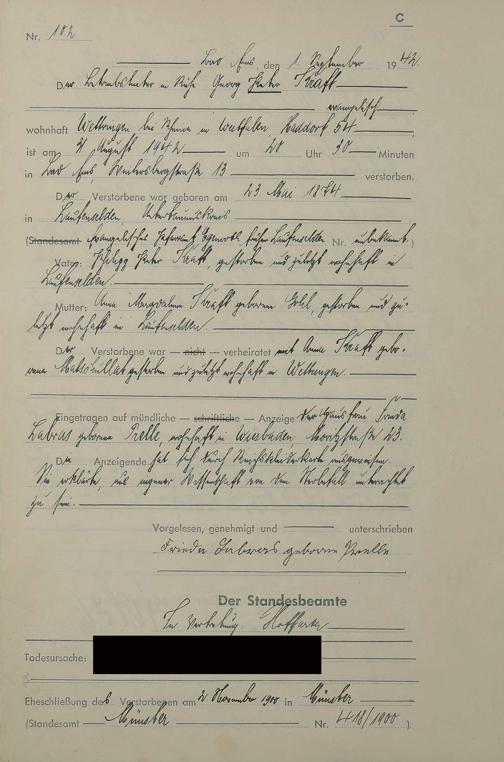 C
Nr. 182
Bad Ems, den 1. September 1942
Der Betriebsleiter in Ruhe Georg Peter Kraft
evangelisch
wohnhaft Wettringen bei Rheine in Westfalen, Haddorf 54
ist am 31. August 1942 um 20 Uhr 30 Minuten
in Bad Ems, 13 verstorben.
Der Verstorbene war geboren am 23. Mai 1874
in Laufenselden Untertaunuskreis
(Standesamt evangelisches Laufenselden Nr. unbekannt)
Vater: Philipp Peter Kraft, gestorben und zuletzt wohnhaft in
Laufenselden.
Mutter: Anna Magdalena Kraft geborene gestorben und zu-
letzt wohnhaft in Laufenselden.
Der Verstorbene war — nicht — verheiratet mit Anna Kraft gebo-
rene gestorben und zuletzt wohnhaft in Wettringen.
Eingetragen auf mündliche — schriftliche — Anzeige der Ehefrau Frieda
Labras geborene Prelle, wohnhaft in Wiesbaden Moritzstraße 23.
Die Anzeigende hat sich durch ausgewiesen.
Sie erklärte, aus eigener Wissenschaft von dem Sterbefall unterrichtet
zu sein.
Vorgelesen, genehmigt und unterschrieben
Frieda Labras geborene Prelle
Der Standesbeamte
In Vertretung: Hoffarth
Todesursache:
Eheschließung des Verstorbenen am 2. November 1900 in Münster
(Standesamt Münster Nr. 418/1900)